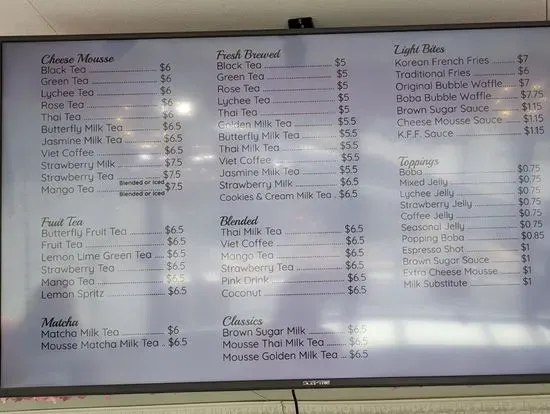 Cheese Mousse
Black Tea $6
Green Tea $6
Lychee Tea $6
Rose Tea $6
Thai Tea $6
Butterfly Milk Tea $6.5
Jasmine Milk Tea $6.5
Viet Coffee $6.5
Strawberry Milk $7.5
Strawberry Tea $7.5
Blended or Iced
Mango Tea $7.5
Blended or Iced
Fruit Tea
Butterfly Fruit Tea $6.5
Fruit Tea $6.5
Lemon Lime Green Tea $6.5
Strawberry Tea $6.5
Mango Tea $6.5
Lemon Spritz $6.5
Matcha
Matcha Milk Tea $6
Mousse Matcha Milk Tea $6.5
Fresh Brewed
Black Tea $5
Green Tea $5
Rose Tea $5
Lychee Tea $5
Thai Tea $5
Golden Milk Tea $5.5
Butterfly Milk Tea $5.5
Thai Milk Tea $5.5
Viet Coffee $5.5
Jasmine Milk Tea $5.5
Strawberry Milk $6.5
Cookies & Cream Milk Tea $6.5
Blended
Thai Milk Tea $6.5
Viet Coffee $6.5
Mango Tea $6.5
Strawberry Tea $6.5
Pink Drink $6.5
Coconut $6.5
Classics
Brown Sugar Milk $6.5
Mousse Thai Milk Tea $6.5
Mousse Golden Milk Tea $6.5
Light Bites
Korean French Fries $7
Traditional Fries $6
Original Bubble Waffle $7
Boba Bubble Waffle $7.75
Brown Sugar Sauce $1.15
Cheese Mousse Sauce $1.15
K.F.F. Sauce $1.15
Toppings
Boba $0.75
Mixed Jelly $0.75
Lychee Jelly $0.75
Strawberry Jelly $0.75
Coffee Jelly $0.75
Seasonal Jelly $0.75
Popping Boba $0.85
Espresso Shot $1
Brown Sugar Sauce $1
Extra Cheese Mousse $1
Milk Substitute $1
SCEPTRE